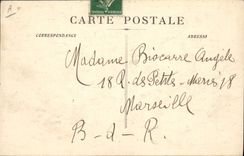 CARTE POSTALE
CORRESPONDANCE
ADRESSE
Madame Biscarre Angèle
18 R. des Petites-Maries 18
Marseille
B-d-R.